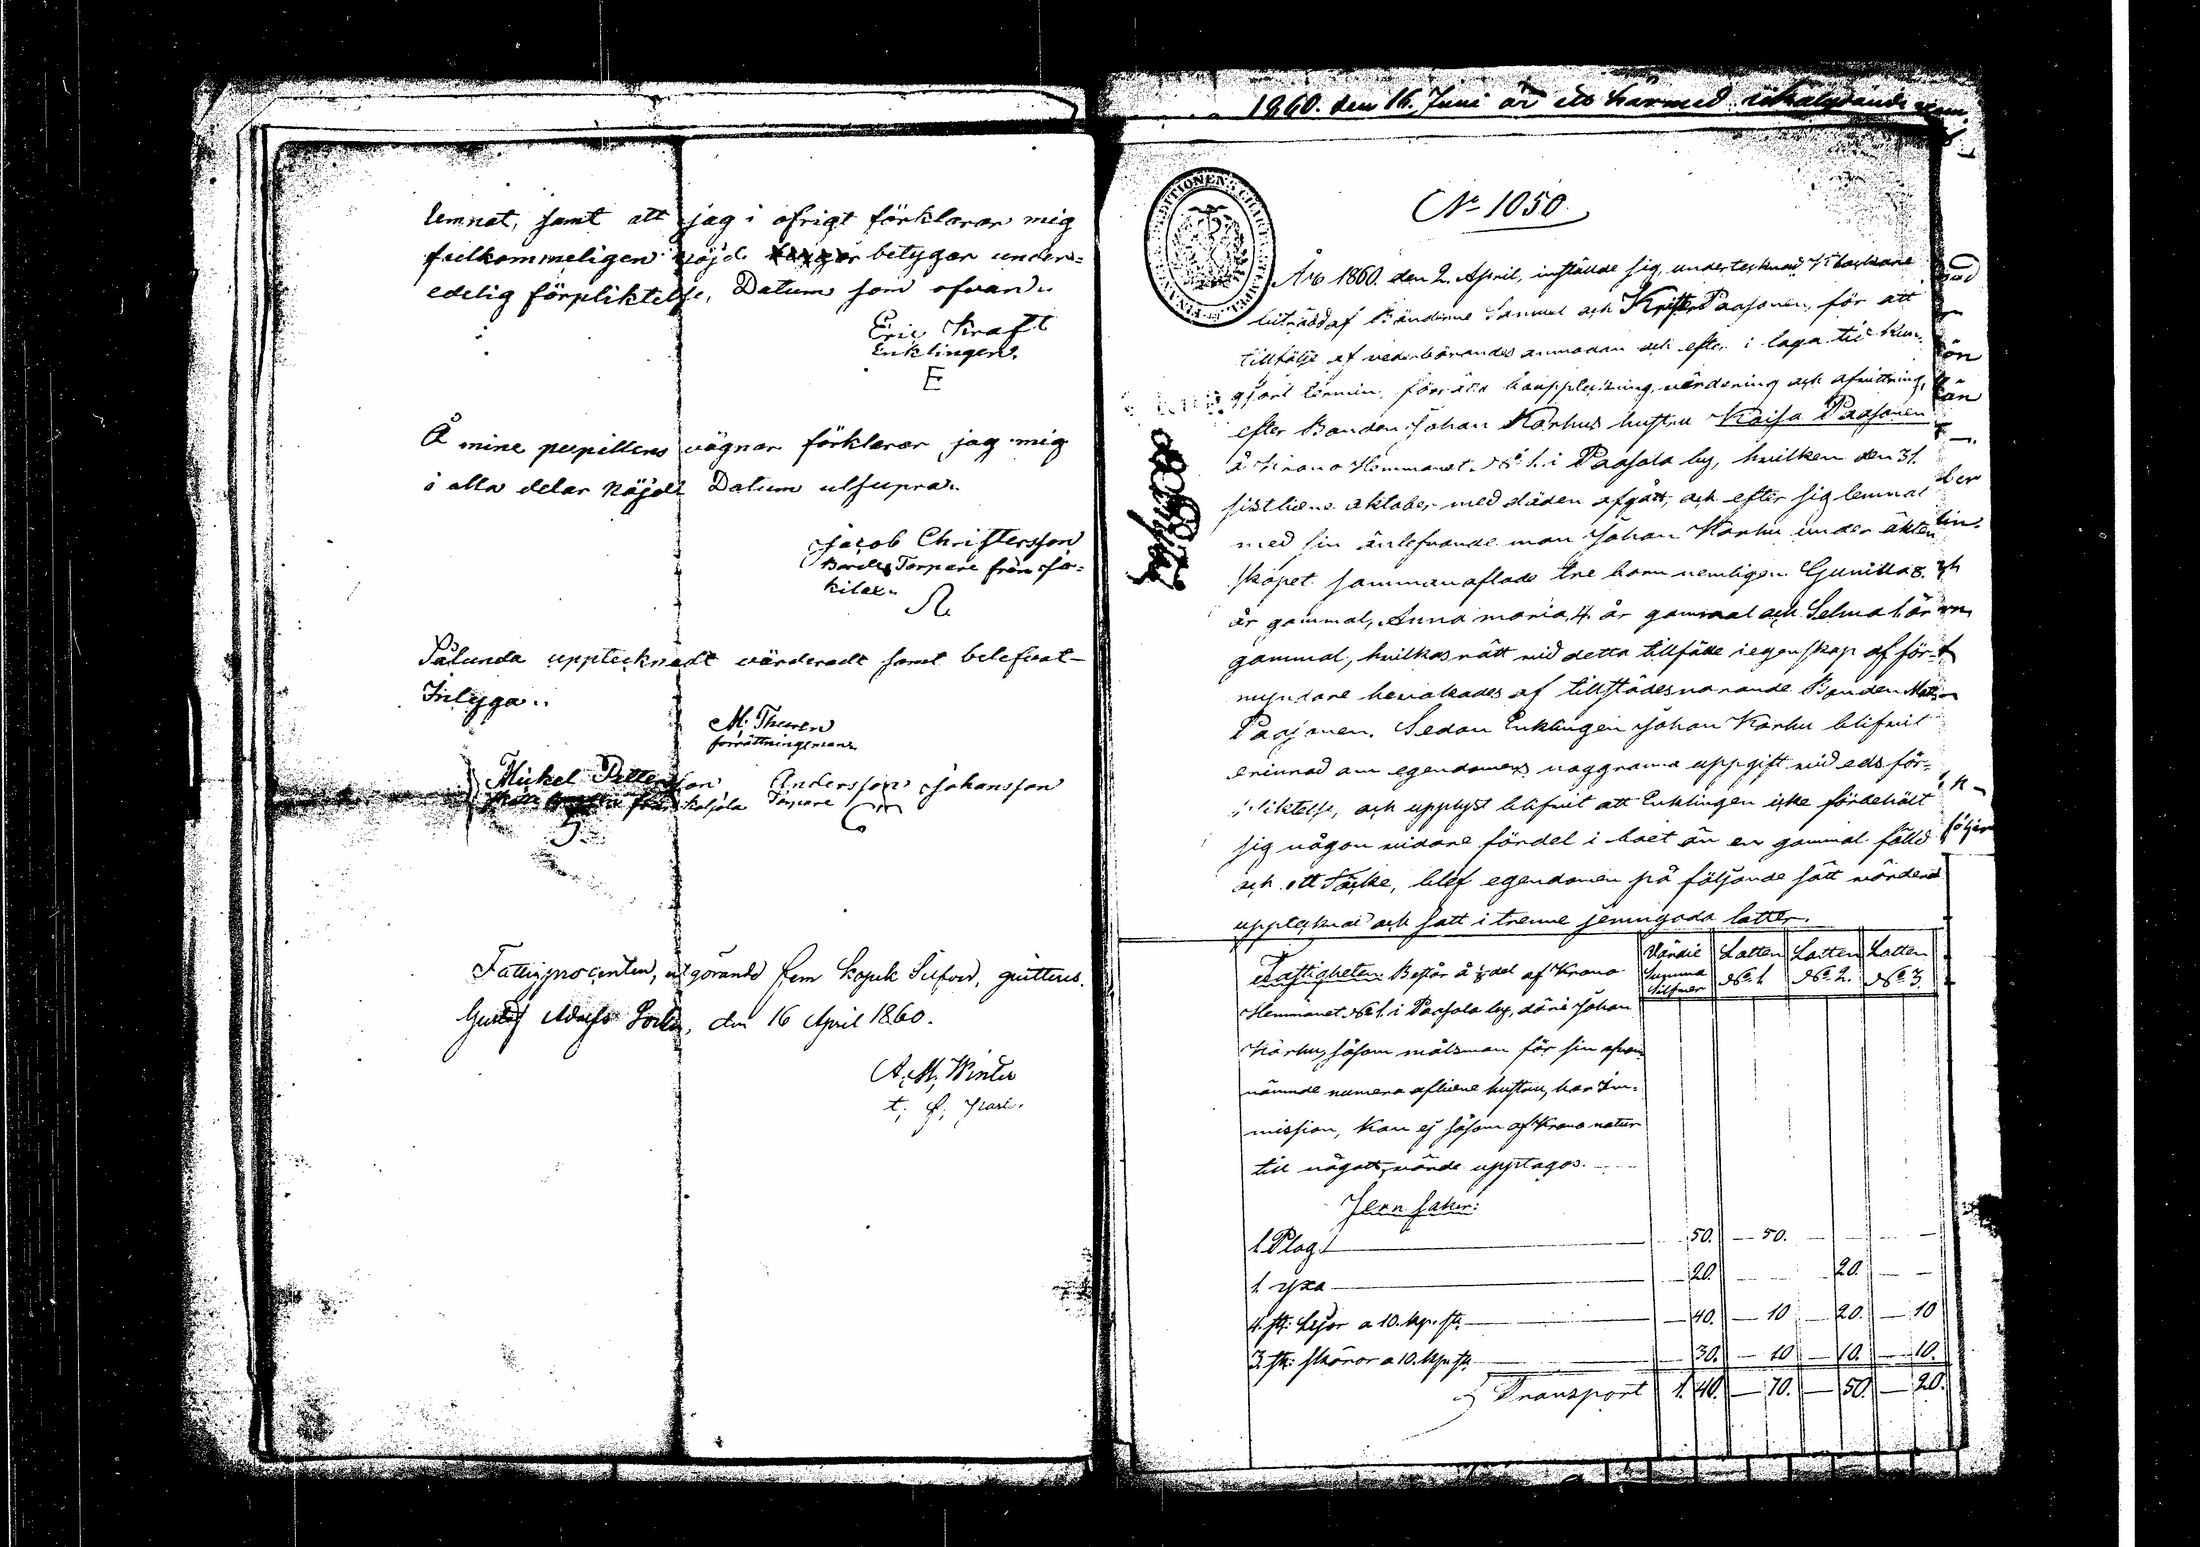 lemnat, samt att jag i öfrigt förklarar mig
fullkommeligen nöjd betygar under
edelig förpliktelse, Datum som ofvan.
Eric Kraft
Enklingen.
E
Å mine pupillers vägnar förklarar jag mig
i alla delar nöjdt Datum utsupra.
Jacob Christersson
Torpare från
kilax.
Sålunda upptecknadt värderadt samt belefvat
Intyga..
M. Thuren
förrättningsman
Mickel Petterson Andersson Johansson
från Koljola Torpare
Fattigprocenten, utgörande fem kopek Silfver, qvitteras.
Gustaf Adolfs Socken, den 16 April 1860.
A. M. Winter
t. f.
1860. den 16. Juni är ett härmed likalydande
No 1050.
År 1860. den 2. April, instälde sig undertecknad Klockare
biträdd af Bönderne Samuel och Krister Paasonen, för att
tillfölje af vederbörandes anmodan och efter i laga tid kun-
gjord termin, förrätta bouppteckning, värdering och afvittring,
efter Bonden Johan Karhus hustru Kaisa Paasonen
å Krono Hemmanet No 1. i Paasola by, hvilken den 31.
sistledne oktober med döden afgått, och efter sig lemnat
med sin änlefvande man Johan Karhu under äkten
skapet sammanaflade tre barn nemligen Gunilla 8.
år gammal, Anna Maria, 4 år gammal och Selma 1 år
gammal, hvilkas rätt vid detta tillfälle i egenskap af för-
myndare bevakades af tillstädesvarande Bonden Mats
Paasonen. Sedan Enklingen Johan Karhu blifvit
erinrad om egendomens noggranna uppgift vid eds för-
pliktelse, och upplyst blifvit att Enklingen icke förbehållt
sig någon vidare fördel i boet än en gammal fälld
och ett Täcke, blef egendomen på följande sätt värderad
upptecknad och satt i trenne jemngoda lotter.
Fastigheten: Består å del af Krono
Hemmanet No 1. i Paasola by, däri Johan
Karhu, såsom målsman för sin ofvan
nämnde numera aflidne hustru, har Im-
mission, kan ej såsom af Krono natur
till något värde upptagas.
Värdie Summa Silfver Lotten No 1. Lotten No 2. Lotten No 3.
Jern saker:
1. Plog 50. — 50. — —
1. yxa — 20. — 20. — —
4. st: Lijor a 10. kop. st. — 40. — 10 — 20. — 10
3. st: skäror a 10. kop. st. — 30. — 10 — 10. — 10.
Transport 1. 40. — 70. — 50. — 20.